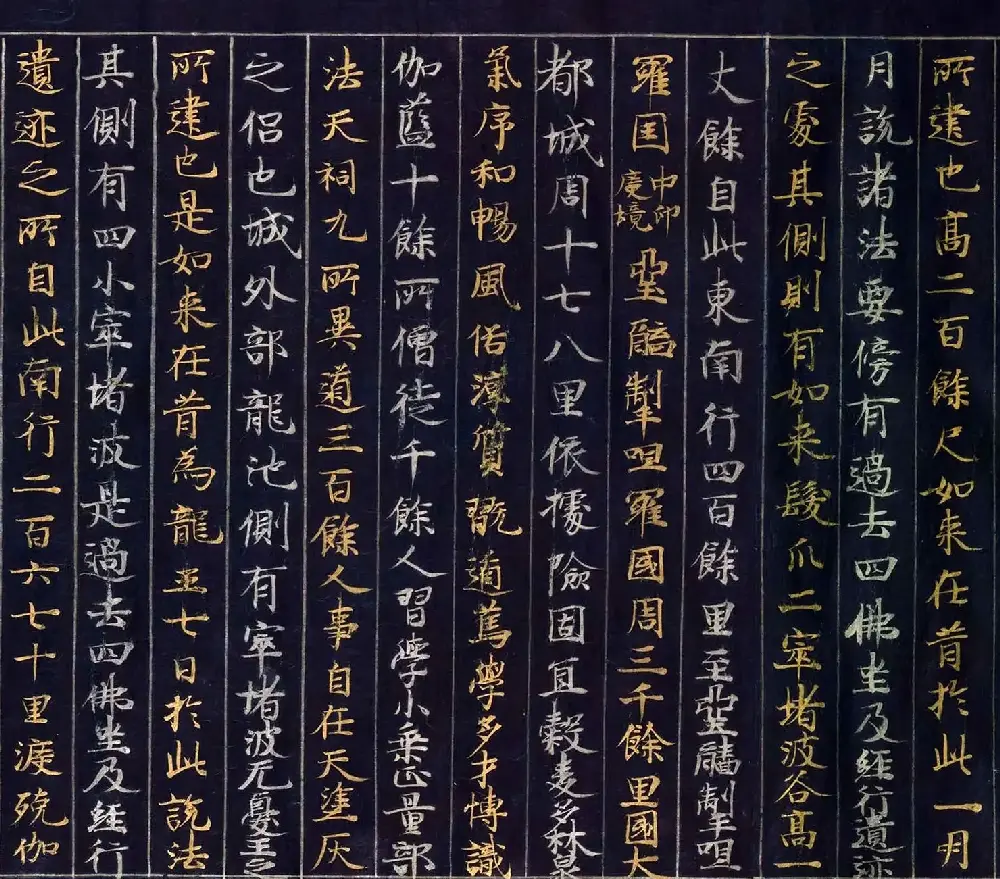 所建也高二百餘尺如来在昔於此一月
月說諸法要傍有過去四佛坐及經行遺迹
之處其側則有如来髮爪二窣堵波各高一
丈餘自此東南行四百餘里至堊醯掣呾
羅国中印度境堊醯掣呾羅國周三千餘里國大
都城周十七八里依據險固宜穀麦多林泉
氣序和暢風俗淳質翫道篤學多才博識
伽藍十餘所僧徒千餘人習學小乗正量部
法天祠九所異道三百餘人事自在天塗灰
之侣也城外部龍池側有窣堵波无憂王之
所建也是如来在昔為龍王七日於此說法
其側有四小窣堵波是過去四佛坐及經行
遺迹之所自此南行二百六七十里渡殑伽